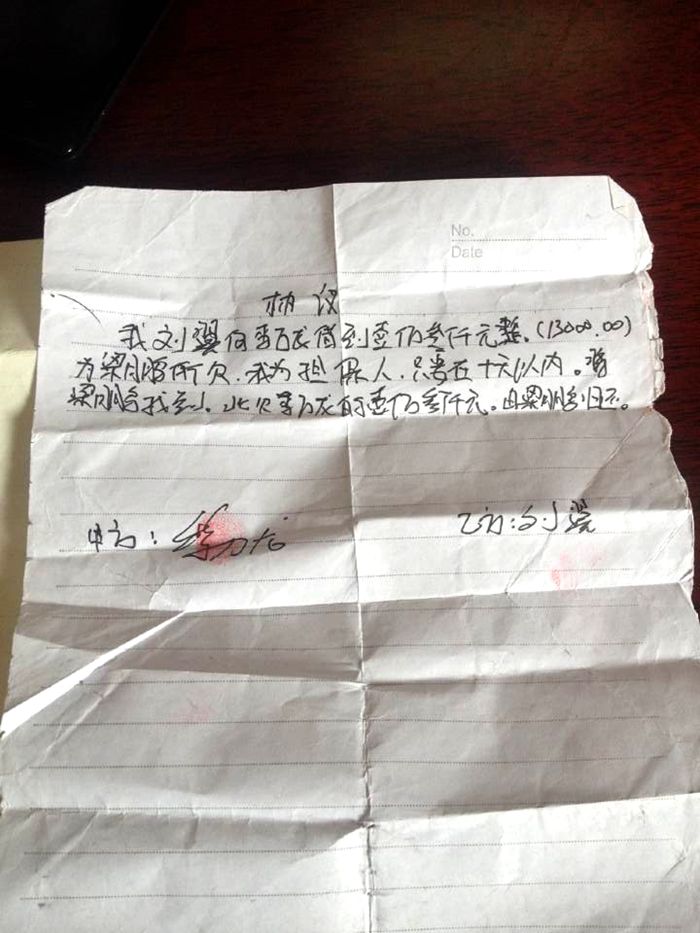 No.
Date
协议
我刘翼向李万龙借到壹万叁仟元整.(13000.00)
为梁鹏所欠.我为担保人.只要在十天以内。将
梁鹏找到.此欠李万龙的壹万叁仟元。由梁鹏归还。
甲方:李万龙
乙方:刘翼